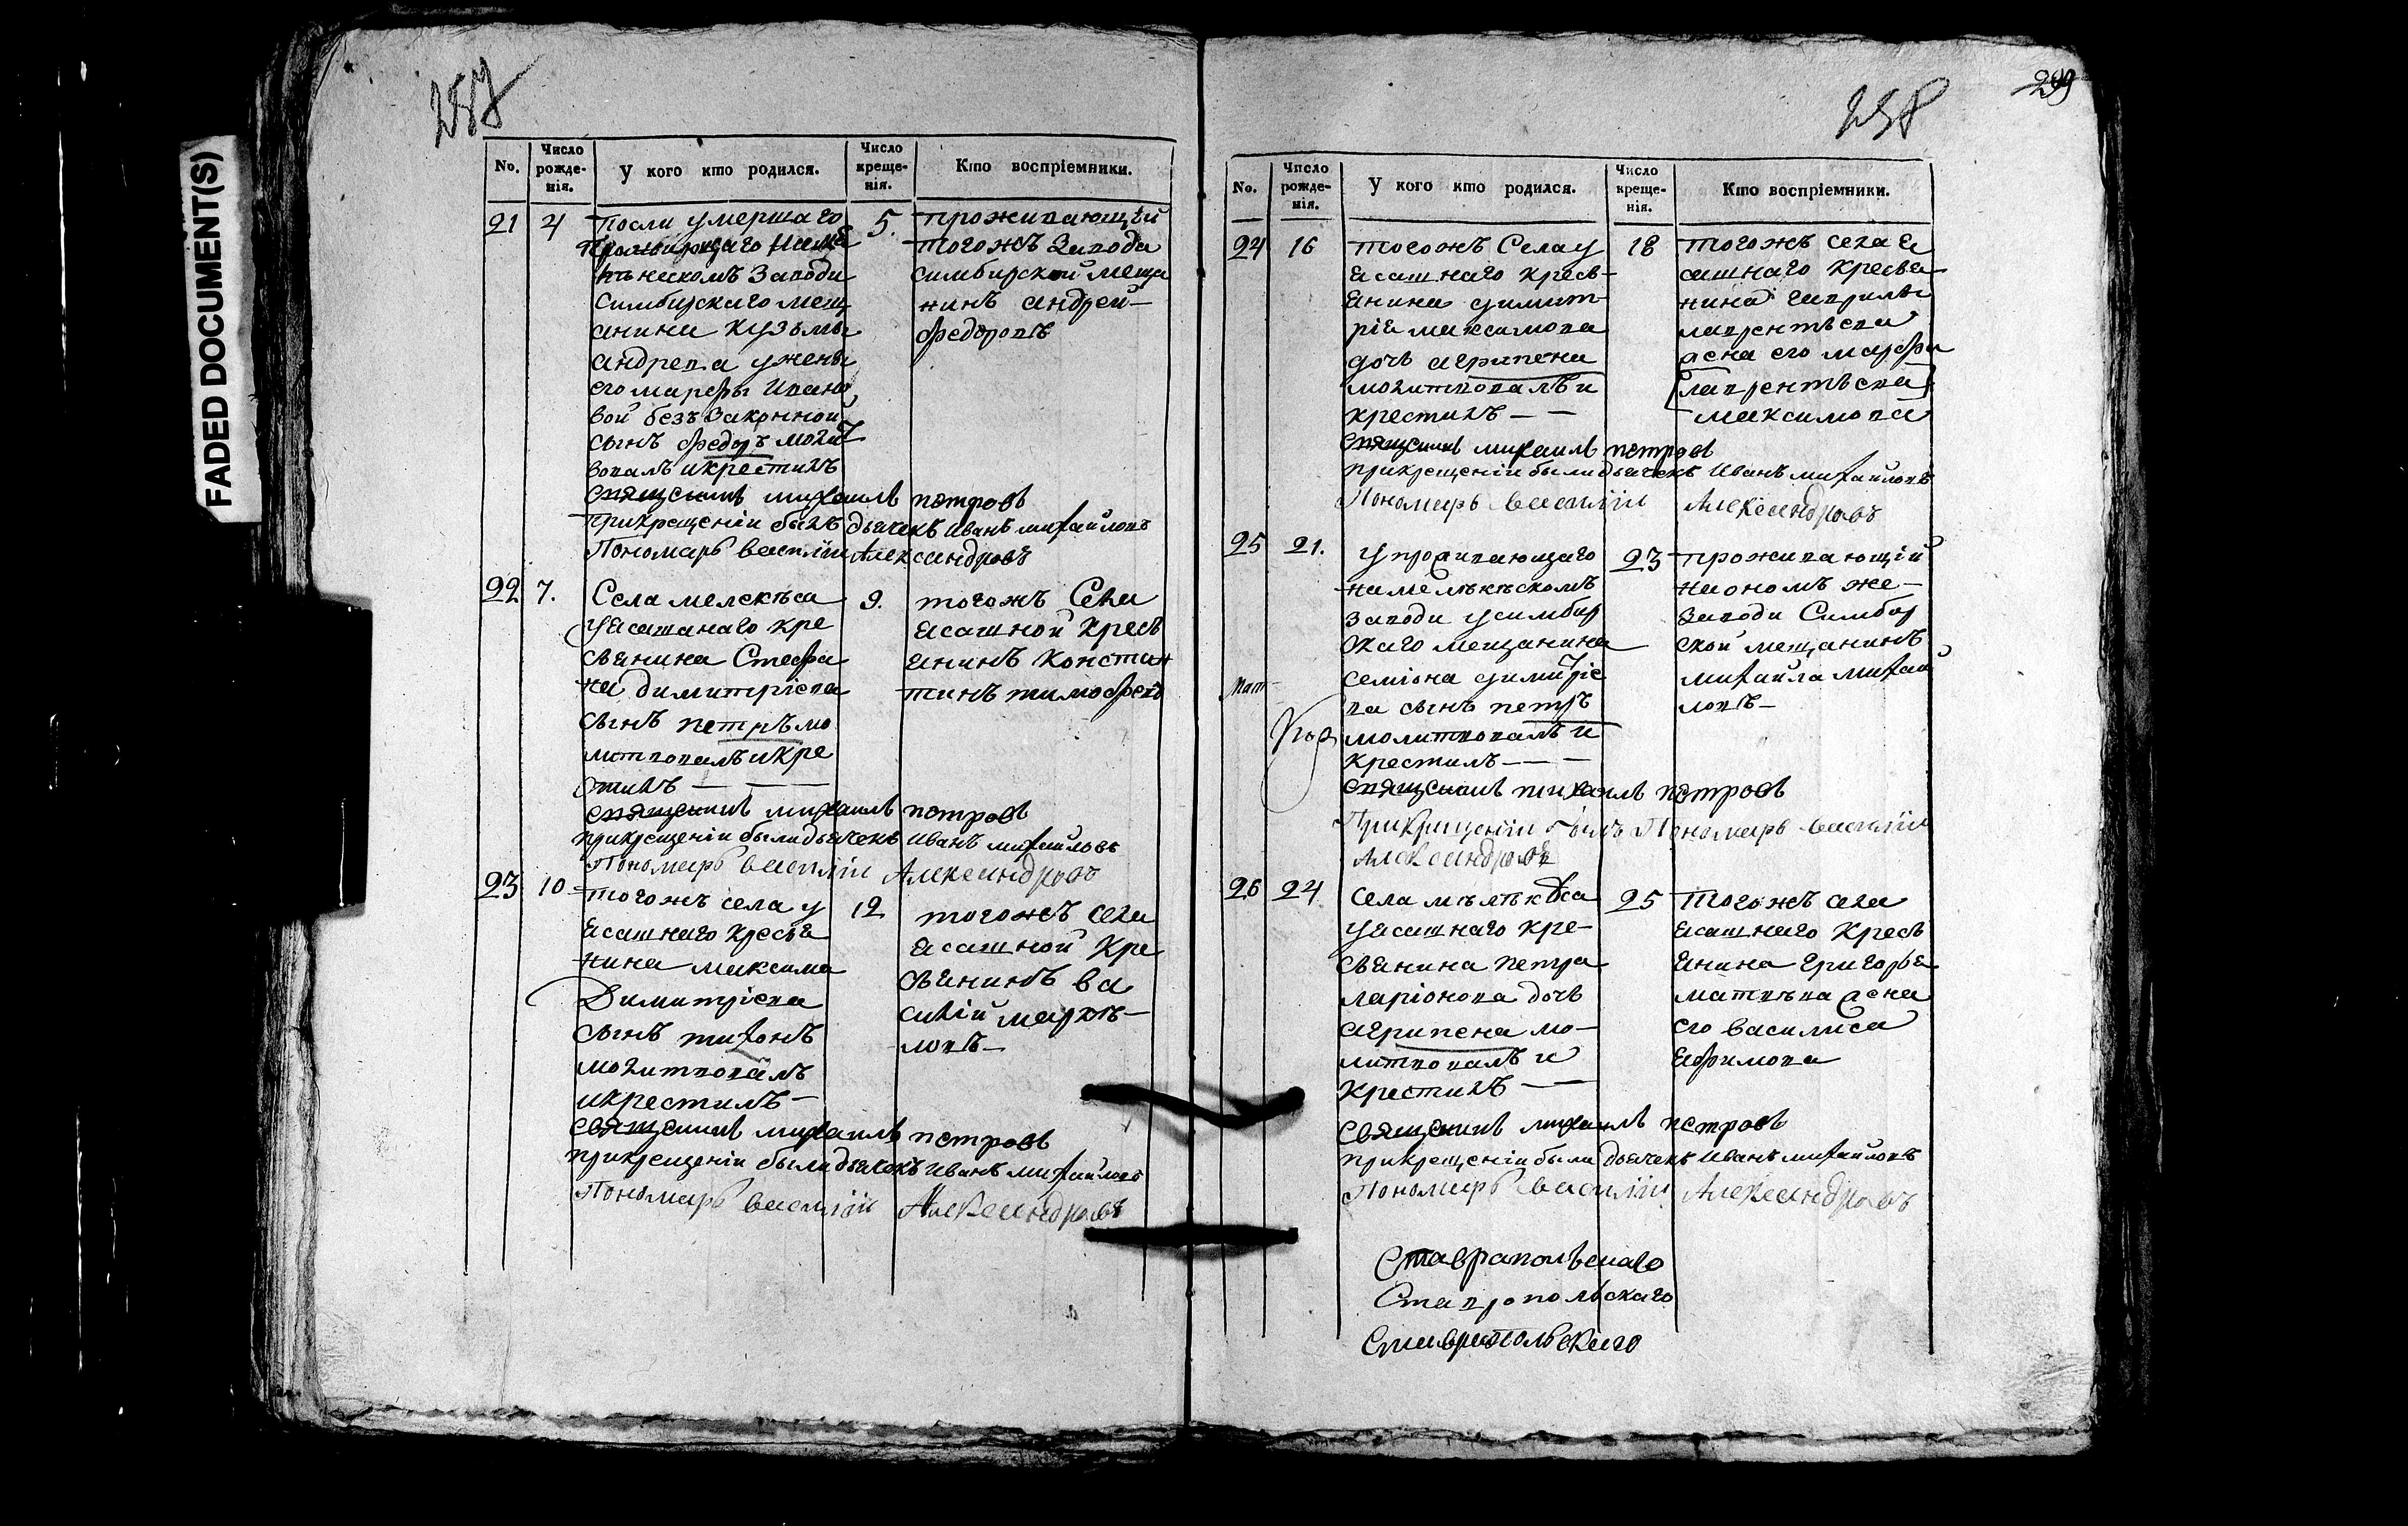 FADED DOCUMENT(S)
257
No.
Число рожде-нія.
У кого кто родился.
Число креще-нія.
Кто воспріемники.
21
4
посли умершаго
заводи
симбирскаго мещ
анина кузьмы
андрева у жены
его марфы ивано
вой без законной
сынъ федоръ молит
вовалъ и крестилъ
5.
проживающій
тогожъ завода
симбирской меща
нинъ андрей
федоровъ
священникъ михаилъ петровъ
при крещеніи былъ дьячекъ иванъ михайловъ
Пономарь василіи Александровъ
22
7.
Села мелекѣса
у ясашнаго кре
стьянина Стефа
на димитріева
сынъ петръ мо
литвовалъ и кре
стилъ
9.
тогожъ Села
ясашной кресть
янинъ констан
тинъ тимофеев
священникъ михаилъ петровъ
при крещеніи были дьячекъ иванъ михайловъ
Пономарь василіи Александровъ
23
10
тогожъ села у
ясашнаго крестья
нина максима
Димитріева
сынъ тихонъ
молитвовалъ
и крестилъ
12
тогожъ села
ясашной кре
стьянинъ ва
силій
ловъ
священникъ михаилъ петровъ
при крещеніи были дьячекъ иванъ михайловъ
Пономарь василіи Александровъ
258
299
No.
Число рожде-нія.
У кого кто родился.
Число креще-нія.
Кто воспріемники.
24
16
тогожъ Села у
ясашнаго кресть-
янина димит
рія максимова
дочь агрипена
молитвовалъ и
крестилъ
18
тогожъ села я
сашнаго крестья
нина гаврилы
лаврентьева
жена его марфа
[лаврентьева]
максимова
священникъ михаилъ петровъ
при крещеніи были дьячекъ Иванъ михайловъ
Пономарь василіи Александровъ
25
21.
у проживающаго
на мелѣкѣскомъ
заводи у симбир
скаго мещанина
семіона димитріе
ва сынъ петръ
молитвовалъ и
крестилъ
23
проживающій
на ономъ же
заводи Симбир
ской мещанинъ
михаила михай
ловъ
священникъ михаилъ петровъ
При крещеніи былъ Пономарь василіи
Александровъ
26
24
села мѣлѣкѣса
у ясашнаго кре-
стьянина петра
ларіонова дочь
агрипена мо-
литвовалъ и
крестилъ
25
тогожъ села
ясашнаго кресть
янина григорья
матвѣва жена
его василиса
ефимова
священникъ михаилъ петровъ
при крещеніи были дьячекъ Иванъ михайловъ
Пономарь василіи Александровъ
Ставрапольскаго
Ставропольскаго
Ставропольскаго